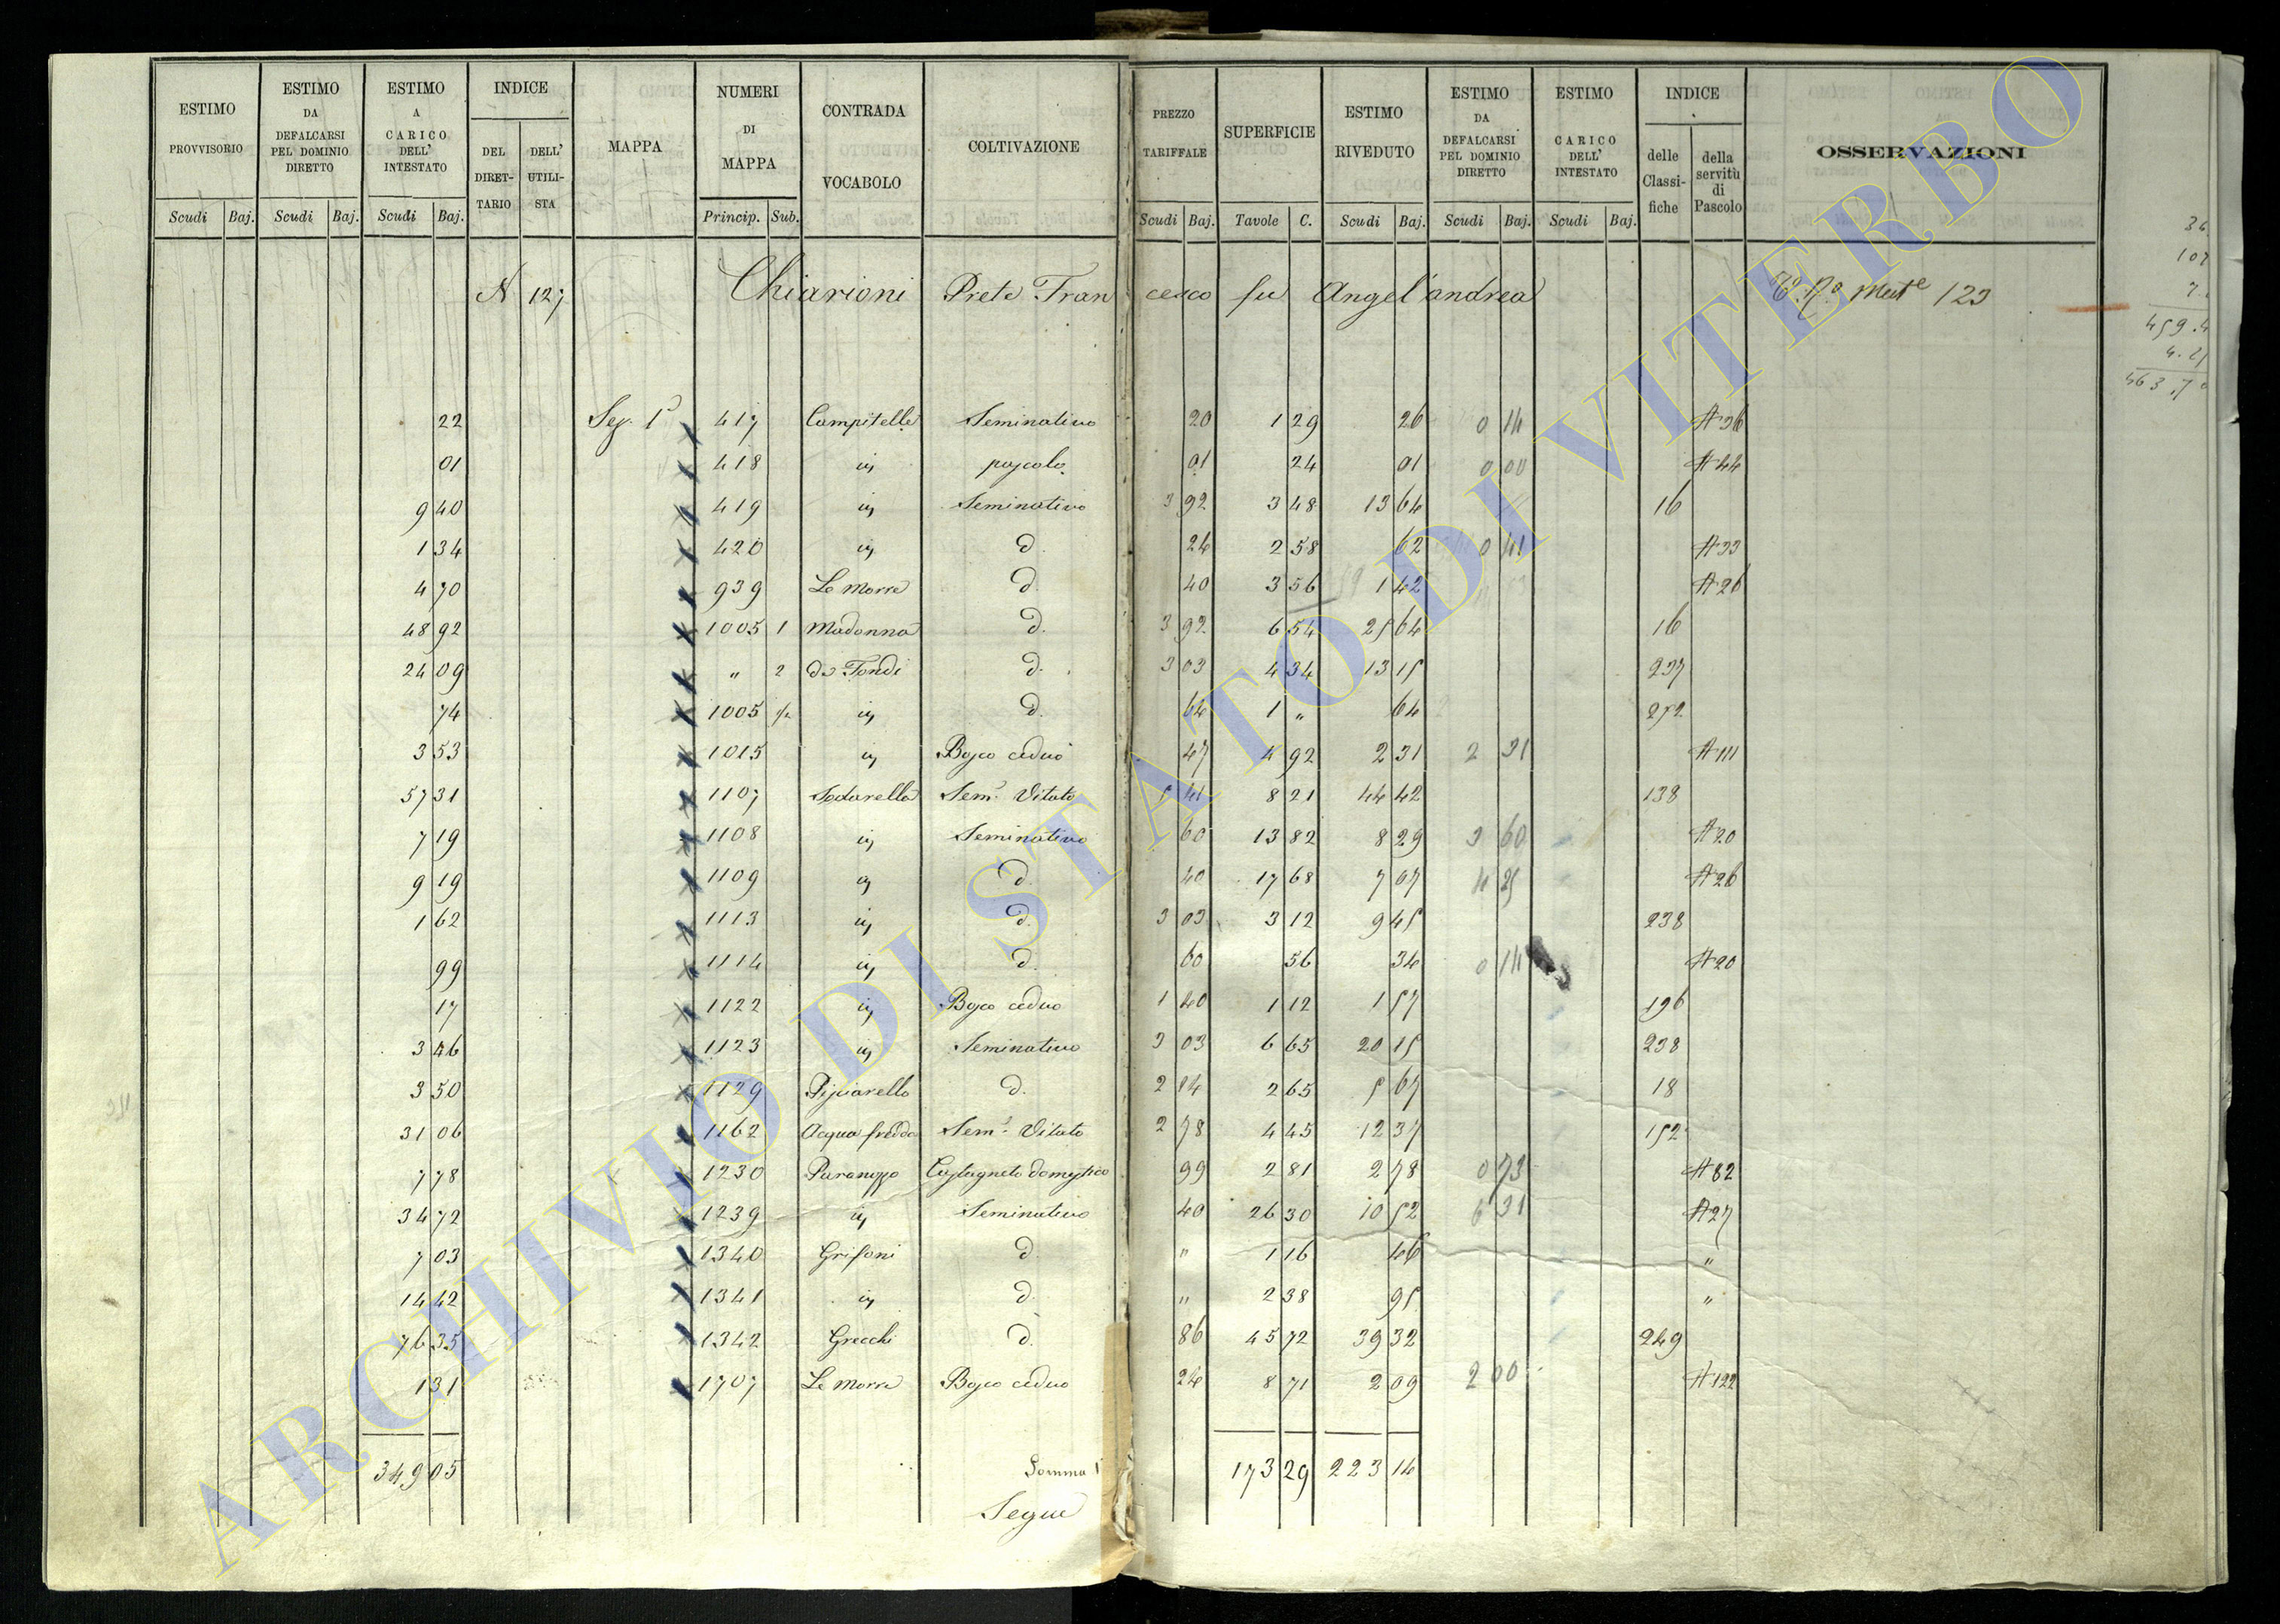 ESTIMO PROVVISORIO Scudi Baj. | ESTIMO DA DEFALCARSI PEL DOMINIO DIRETTO Scudi Baj. | ESTIMO A CARICO DELL' INTESTATO Scudi Baj. | INDICE DEL DIRET-TARIO DELL' UTILI-STA | MAPPA | NUMERI DI MAPPA Princip. Sub. | CONTRADA VOCABOLO | COLTIVAZIONE | PREZZO TARIFFALE Scudi Baj. | SUPERFICIE Tavole C. | ESTIMO RIVEDUTO Scudi Baj. | ESTIMO DA DEFALCARSI PEL DOMINIO DIRETTO Scudi Baj. | ESTIMO CARICO DELL' INTESTATO Scudi Baj. | INDICE delle Classi-fiche della servitù di Pascolo | OSSERVAZIONI
N 127 Chiarioni Prete Francesco fu Angel'andrea 123
22 Sez. 1ª 417 Campitelle Seminativo 20 1 29 26 0 14 A 36
01 418 id pascolo 01 24 01 0 00 A 44
9 40 419 id Seminativo 3 92 3 48 13 64 16
1 34 420 id d. 24 2 58 62 0 41 A 33
4 70 939 Le Morre d. 40 3 56 1 42 A 26
48 92 1005 1 Madonna d. 3 92 6 54 25 64 16
24 09 " 2 di Fondi d. 3 03 4 34 13 15 237
74 1005 1/2 id d. 64 1 " 64 272
3 53 1015 id Bosco ceduo 47 4 92 2 31 2 31 A 111
57 31 1107 Sodarella Sem.º Vitato 5 41 8 21 44 42 138
7 19 1108 id Seminativo 60 13 82 8 29 3 60 A 20
9 19 1109 id d. 40 17 68 7 07 4 25 A 26
1 62 1113 id d. 3 03 3 12 9 45 238
99 1114 id d. 60 56 34 0 14 A 20
17 1122 id Bosco ceduo 1 40 1 12 1 57 196
3 46 1123 id Seminativo 3 03 6 65 20 15 238
3 50 1129 Pisciarello d. 2 14 2 65 5 67 18
31 06 1162 Acqua fredda Sem.º Vitato 2 78 4 45 12 37 152
7 78 1230 Paranzzo Castagneto domestico 99 2 81 2 78 0 73 A 82
34 72 1239 id Seminativo 40 26 30 10 52 6 31 A 27
7 03 1340 Grifoni d. " 1 16 46 "
14 42 1341 id d. " 2 38 95 "
76 35 1342 Grecchi d. 86 45 72 39 32 249
1 31 1707 Le Morre Bosco ceduo 24 8 71 2 09 2 00 A 122
349 05 Somma 173 29 223 14
Segue
459.4
463.7
ARCHIVIO DI STATO DI VITERBO